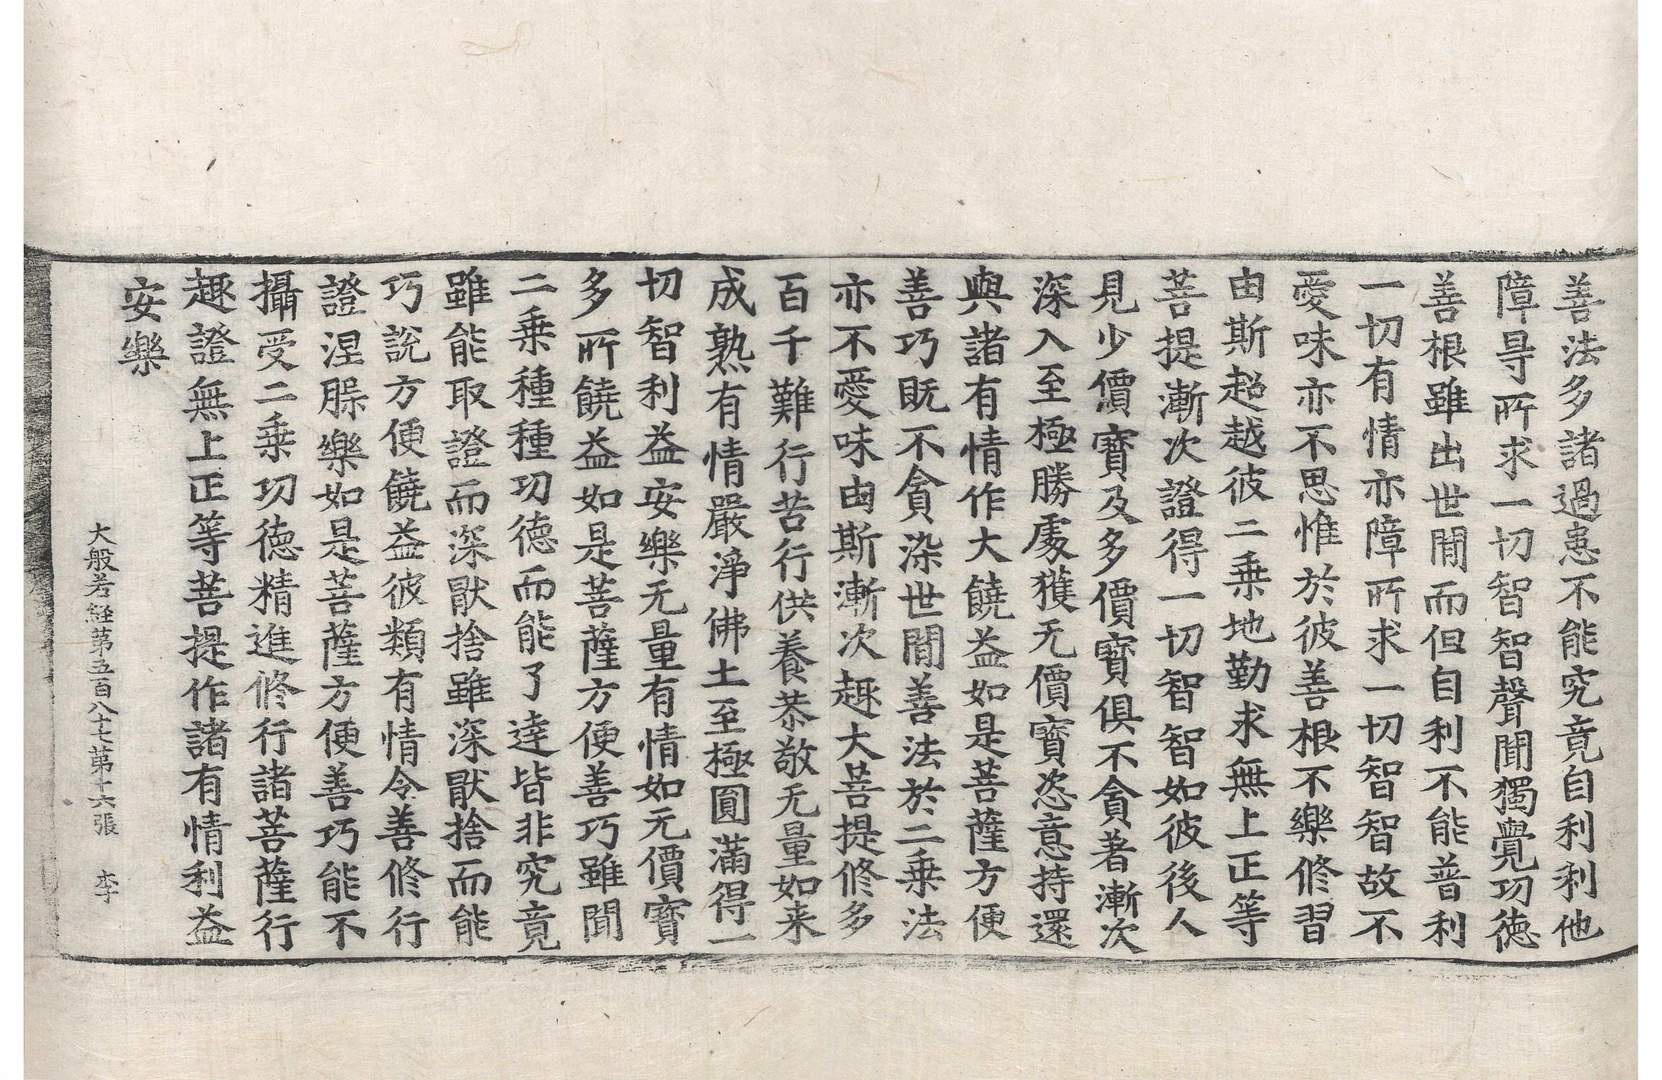 善法多諸過患不能究竟自利利他
障㝵所求一切智智聲聞獨覺功德
善根雖出世閒而但自利不能普利
一切有情亦障所求一切智智故不
愛味亦不思惟於彼善根不樂修習
由斯超越彼二乘地勤求無上正等
菩提漸次證得一切智智如彼後人
見少價寶及多價寶俱不貪著漸次
深入至極勝處獲无價寶恣意持還
與諸有情作大饒益如是菩薩方便
善巧既不貪染世閒善法於二乘法
亦不愛味由斯漸次趣大菩提修多
百千難行苦行供養恭敬无量如来
成熟有情嚴淨佛土至極圓滿得一
切智利益安樂无量有情如无價寶
多所饒益如是菩薩方便善巧雖聞
二乘種種功德而能了達皆非究竟
雖能取證而深猒捨雖深猒捨而能
巧說方便饒益彼類有情令善修行
證涅槃樂如是菩薩方便善巧能不
攝受二乘功德精進修行諸菩薩行
趣證無上正等菩提作諸有情利益
安樂
大般若経第五百八十七第十六張 李